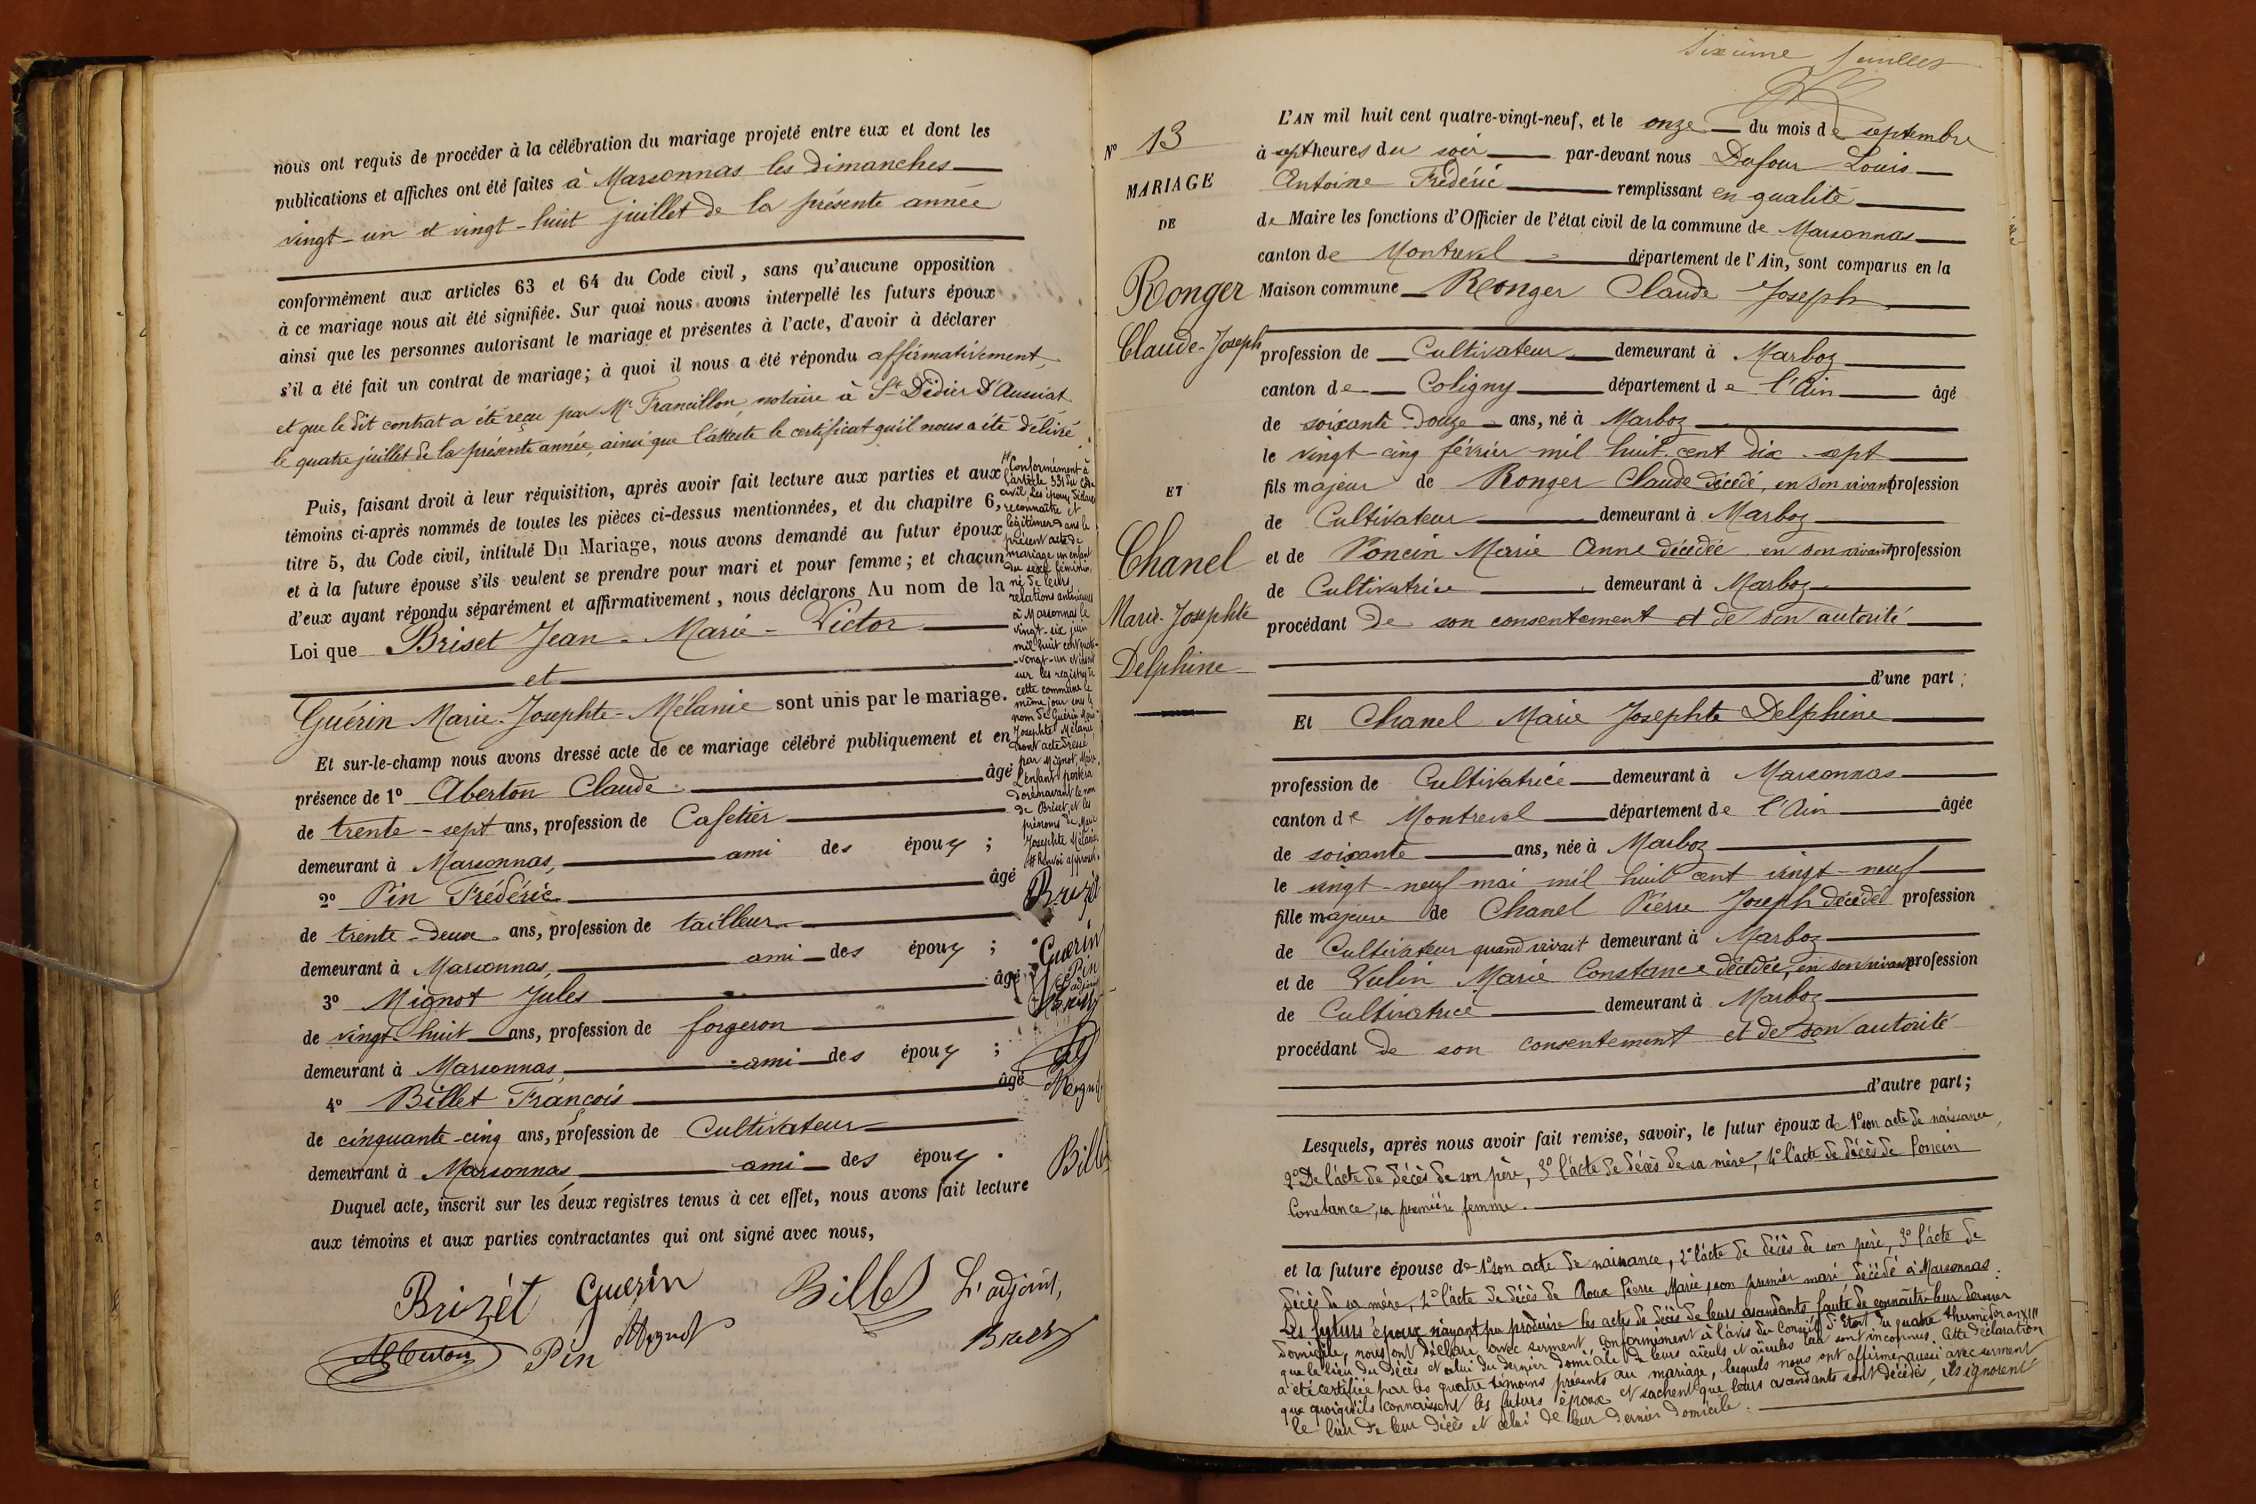 nous ont requis de procéder à la célébration du mariage projeté entre eux et dont les
publications et affiches ont été faites à Marsonnas les dimanches
vingt-un et vingt-huit juillet de la présente année
conformément aux articles 63 et 64 du Code civil, sans qu'aucune opposition
à ce mariage nous ait été signifiée. Sur quoi nous avons interpellé les futurs époux
ainsi que les personnes autorisant le mariage et présentes à l'acte, d'avoir à déclarer
s'il a été fait un contrat de mariage; à quoi il nous a été répondu affirmativement,
et que le dit contrat a été reçu par Me Francillon, notaire à St Didier D'Aussiat
le quatre juillet de la présente année, ainsi que l'atteste le certificat qu'il nous a été délivré.
Puis, faisant droit à leur réquisition, après avoir fait lecture aux parties et aux
témoins ci-après nommés de toutes les pièces ci-dessus mentionnées, et du chapitre 6,
titre 5, du Code civil, intitulé Du Mariage, nous avons demandé au futur époux
et à la future épouse s'ils veulent se prendre pour mari et pour femme; et chacun
d'eux ayant répondu séparément et affirmativement, nous déclarons Au nom de la
Loi que Briset Jean-Marie-Victor
et
Guérin Marie-Josephte-Mélanie sont unis par le mariage.
Et sur-le-champ nous avons dressé acte de ce mariage célébré publiquement et en
présence de 1° Aberton Claude âgé
de trente-sept ans, profession de Cafetier
demeurant à Marsonnas, ami des époux ;
2° Pin Frédéric âgé
de trente-deux ans, profession de tailleur
demeurant à Marsonnas, ami des époux ;
3° Mignot Jules âgé
de vingt-huit ans, profession de forgeron
demeurant à Marsonnas, ami des époux ;
4° Billet François âgé
de cinquante-cinq ans, profession de Cultivateur
demeurant à Marsonnas, ami des époux .
Duquel acte, inscrit sur les deux registres tenus à cet effet, nous avons fait lecture
aux témoins et aux parties contractantes qui ont signé avec nous,
Brizèt Guerin Billet L'adjoint,
Aberton Pin Mignot
Conformément à
l'article 331 du Code
civil les époux déclarent
reconnaître et
légitimer dans le
présent acte de
mariage un enfant
du sexe féminin,
né de leurs
relations antérieures
à Marsonnas le
vingt-six juin
mil huit cent quatre
-vingt-un et inscrit
sur les registres de
cette commune le
même jour sous le
nom de Guérin Marie
Josephte Mélanie
dont acte dressé
par Mignot, Maire.
L'enfant portera
dorénavant le nom
de Briset et les
prénoms de Marie
Josephte Mélanie.
Renvoi approuvé.
Brizèt
Guerin
Pin
L'adjoint
Mignot
Billet
Sixième feuillet
N° 13
MARIAGE
DE
Ronger
Claude-Joseph
ET
Chanel
Marie-Josephte
Delphine
L'AN mil huit cent quatre-vingt-neuf, et le onze du mois de septembre
à sept heures du soir par-devant nous Dufour Louis
Antoine Frédéric remplissant en qualité
de Maire les fonctions d'Officier de l'état civil de la commune de Marsonnas
canton de Montrevel département de l'Ain, sont comparus en la
Maison commune Ronger Claude Joseph
profession de Cultivateur demeurant à Marboz
canton de Coligny département de l'Ain âgé
de soixante-douze ans, né à Marboz
le vingt-cinq février mil huit cent dix-sept
fils majeur de Ronger Claude décédé, en son vivant profession
de Cultivateur demeurant à Marboz
et de Poncin Marie Anne décédée en son vivant profession
de Cultivatrice demeurant à Marboz
procédant de son consentement et de son autorité
d'une part;
Et Chanel Marie Josephte Delphine
profession de Cultivatrice demeurant à Marsonnas
canton de Montrevel département de l'Ain âgée
de soixante ans, née à Marboz
le vingt-neuf mai mil huit cent vingt-neuf
fille majeure de Chanel Pierre Joseph décédé profession
de Cultivateur quand vivait demeurant à Marboz
et de Vulin Marie Constance décédée, en son vivant profession
de Cultivatrice demeurant à Marboz
procédant de son consentement et de son autorité
d'autre part;
Lesquels, après nous avoir fait remise, savoir, le futur époux de 1° son acte de naissance,
2° De l'acte de décès de son père, 3° l'acte de décès de sa mère, 4° l'acte de décès de Poncin
Constance, sa première femme.
et la future épouse de 1° son acte de naissance, 2° l'acte de décès de son père, 3° l'acte de
décès de sa mère, 4° l'acte de décès de Roux Pierre Marie, son premier mari, décédé à Marsonnas.
Les futurs époux n'ayant pu produire les actes de décès de leurs ascendants, faute de connaître leur dernier
domicile, nous ont déclaré avec serment, conformément à l'avis du Conseil d'Etat du quatre thermidor an XIII
que le lieu du décès et celui du dernier domicile de leurs aïeuls et aïeules leur sont inconnus. Cette déclaration
a été certifiée par les quatre témoins présents au mariage, lesquels nous ont affirmé, aussi avec serment
que quoiqu'ils connaissent les futurs époux et sachent que leurs ascendants sont décédés, ils ignorent
le lieu de leur décès et celui de leur dernier domicile.